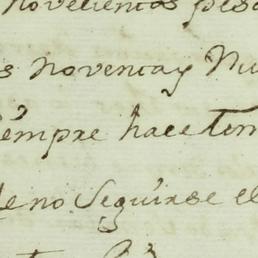 novecientos pesos
s noventay Nu
iempre hace tem
de no seguirse el